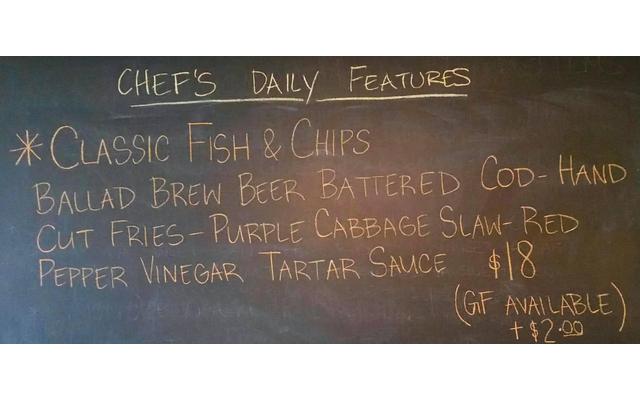 CHEF'S DAILY FEATURES
* CLASSIC FISH & CHIPS
BALLAD BREW BEER BATTERED COD - HAND
CUT FRIES - PURPLE CABBAGE SLAW - RED
PEPPER VINEGAR TARTAR SAUCE $18
(GF AVAILABLE)
+ $2.00